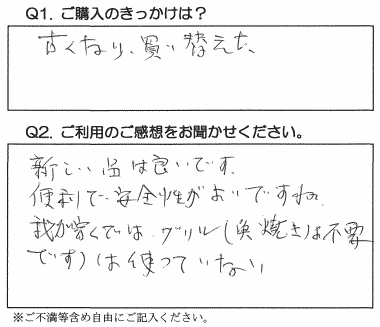 Q1. ご購入のきっかけは？
古くなり、買い替えた、
Q2. ご利用のご感想をお聞かせください。
新しい品は良いです。
便利で安全性がよいですね。
我が家では グリル(魚焼きは不要
です)は使っていない
※ご不満等含め自由にご記入ください。